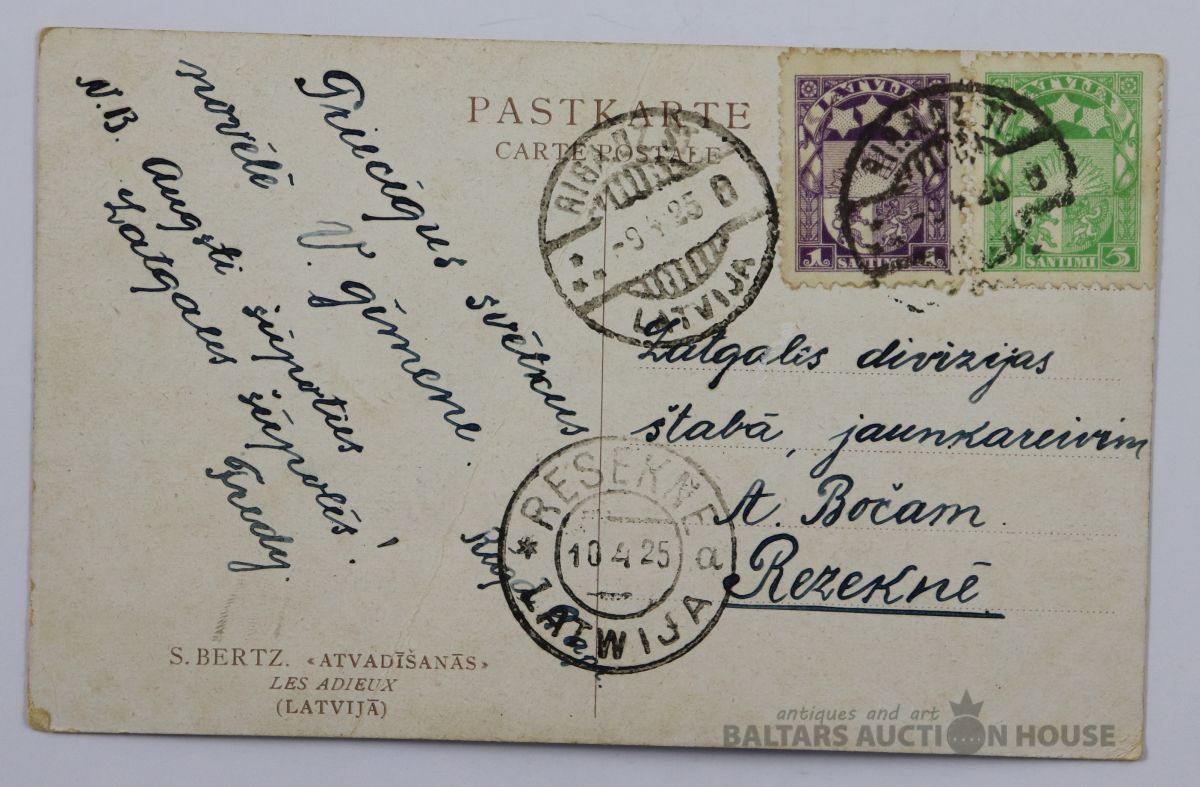 PASTKARTE
CARTE POSTALE
Priecīgus svētkus
novēlē V. gimene.
N.B. Augsti šūpoties
Latgales šūpolēs!
Fredy.
LATVIJA
1 SANTIMI 1
LATVIJA
5 SANTIMI 5
RIGA
-9 4 25 B
LATVIJA
-9 4 25 B
Latgales divizijas
štabā, jaunkareivim
A. Bočam.
Rezeknē.
RESEKNE
10 4 25 a
LATWIJA
S. BERTZ. «ATVADĪŠANĀS»
LES ADIEUX
(LATVIJĀ)
antiques and art
BALTARS AUCTION HOUSE